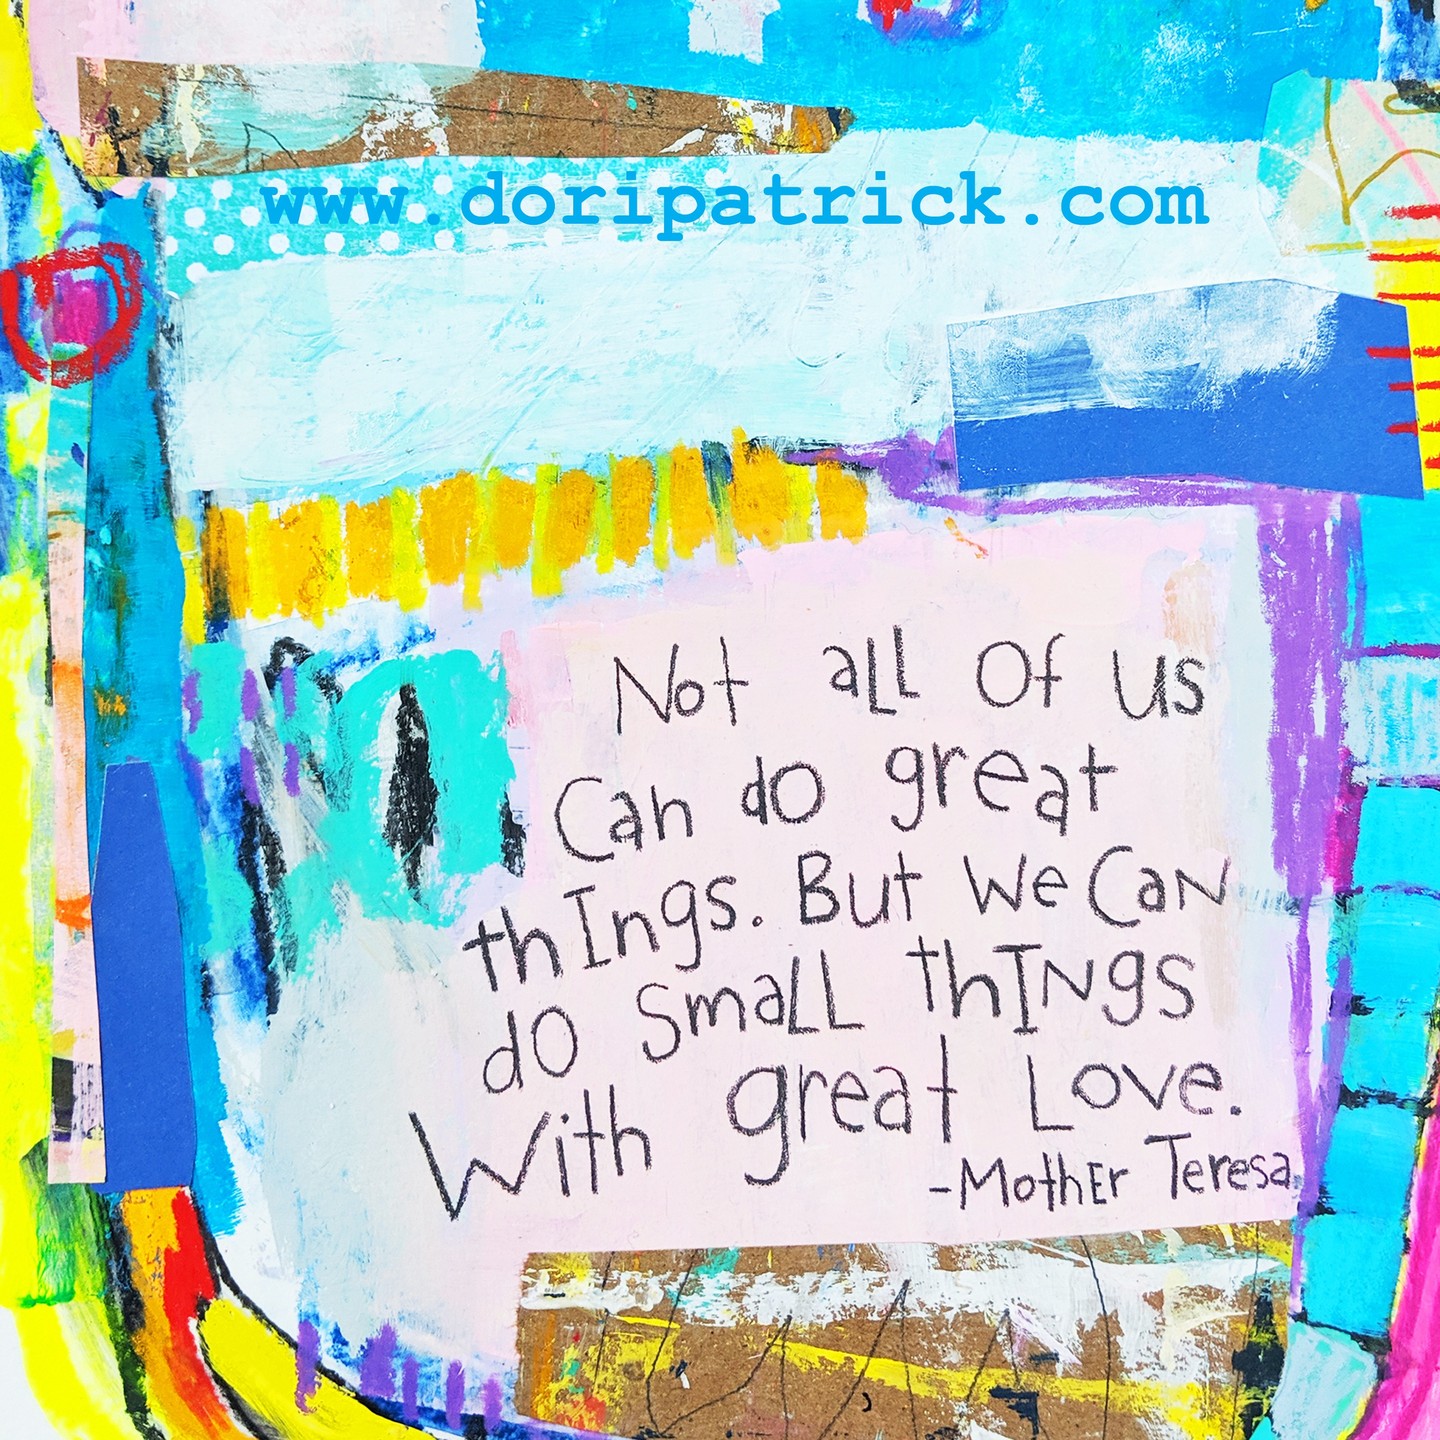 www.doripatrick.com
Not aLL Of us
Can do great
thIngs. But We CaN
dO SmaLL thINgs
With great Love.
-MothEr Teresa.